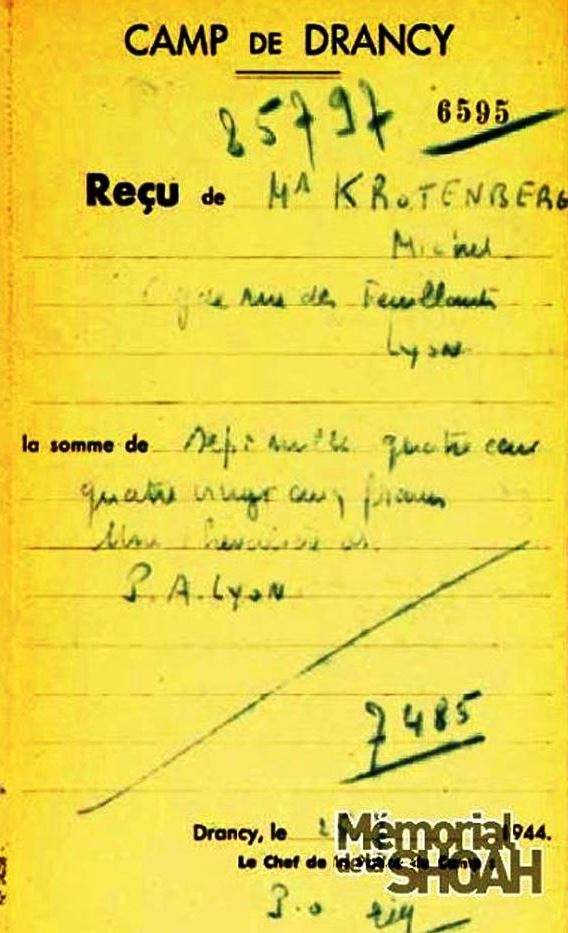 CAMP DE DRANCY
85797 6595
Reçu de Mr KROTENBERG
Michel
rue des Feuillants
Lyon
la somme de sept mille quatre cent
quatre vingt cinq francs
Une chevalière or
P. A. Lyon
7485
Drancy, le 1944.
Le Chef de
P.o
Mémorial
de la
SHOAH